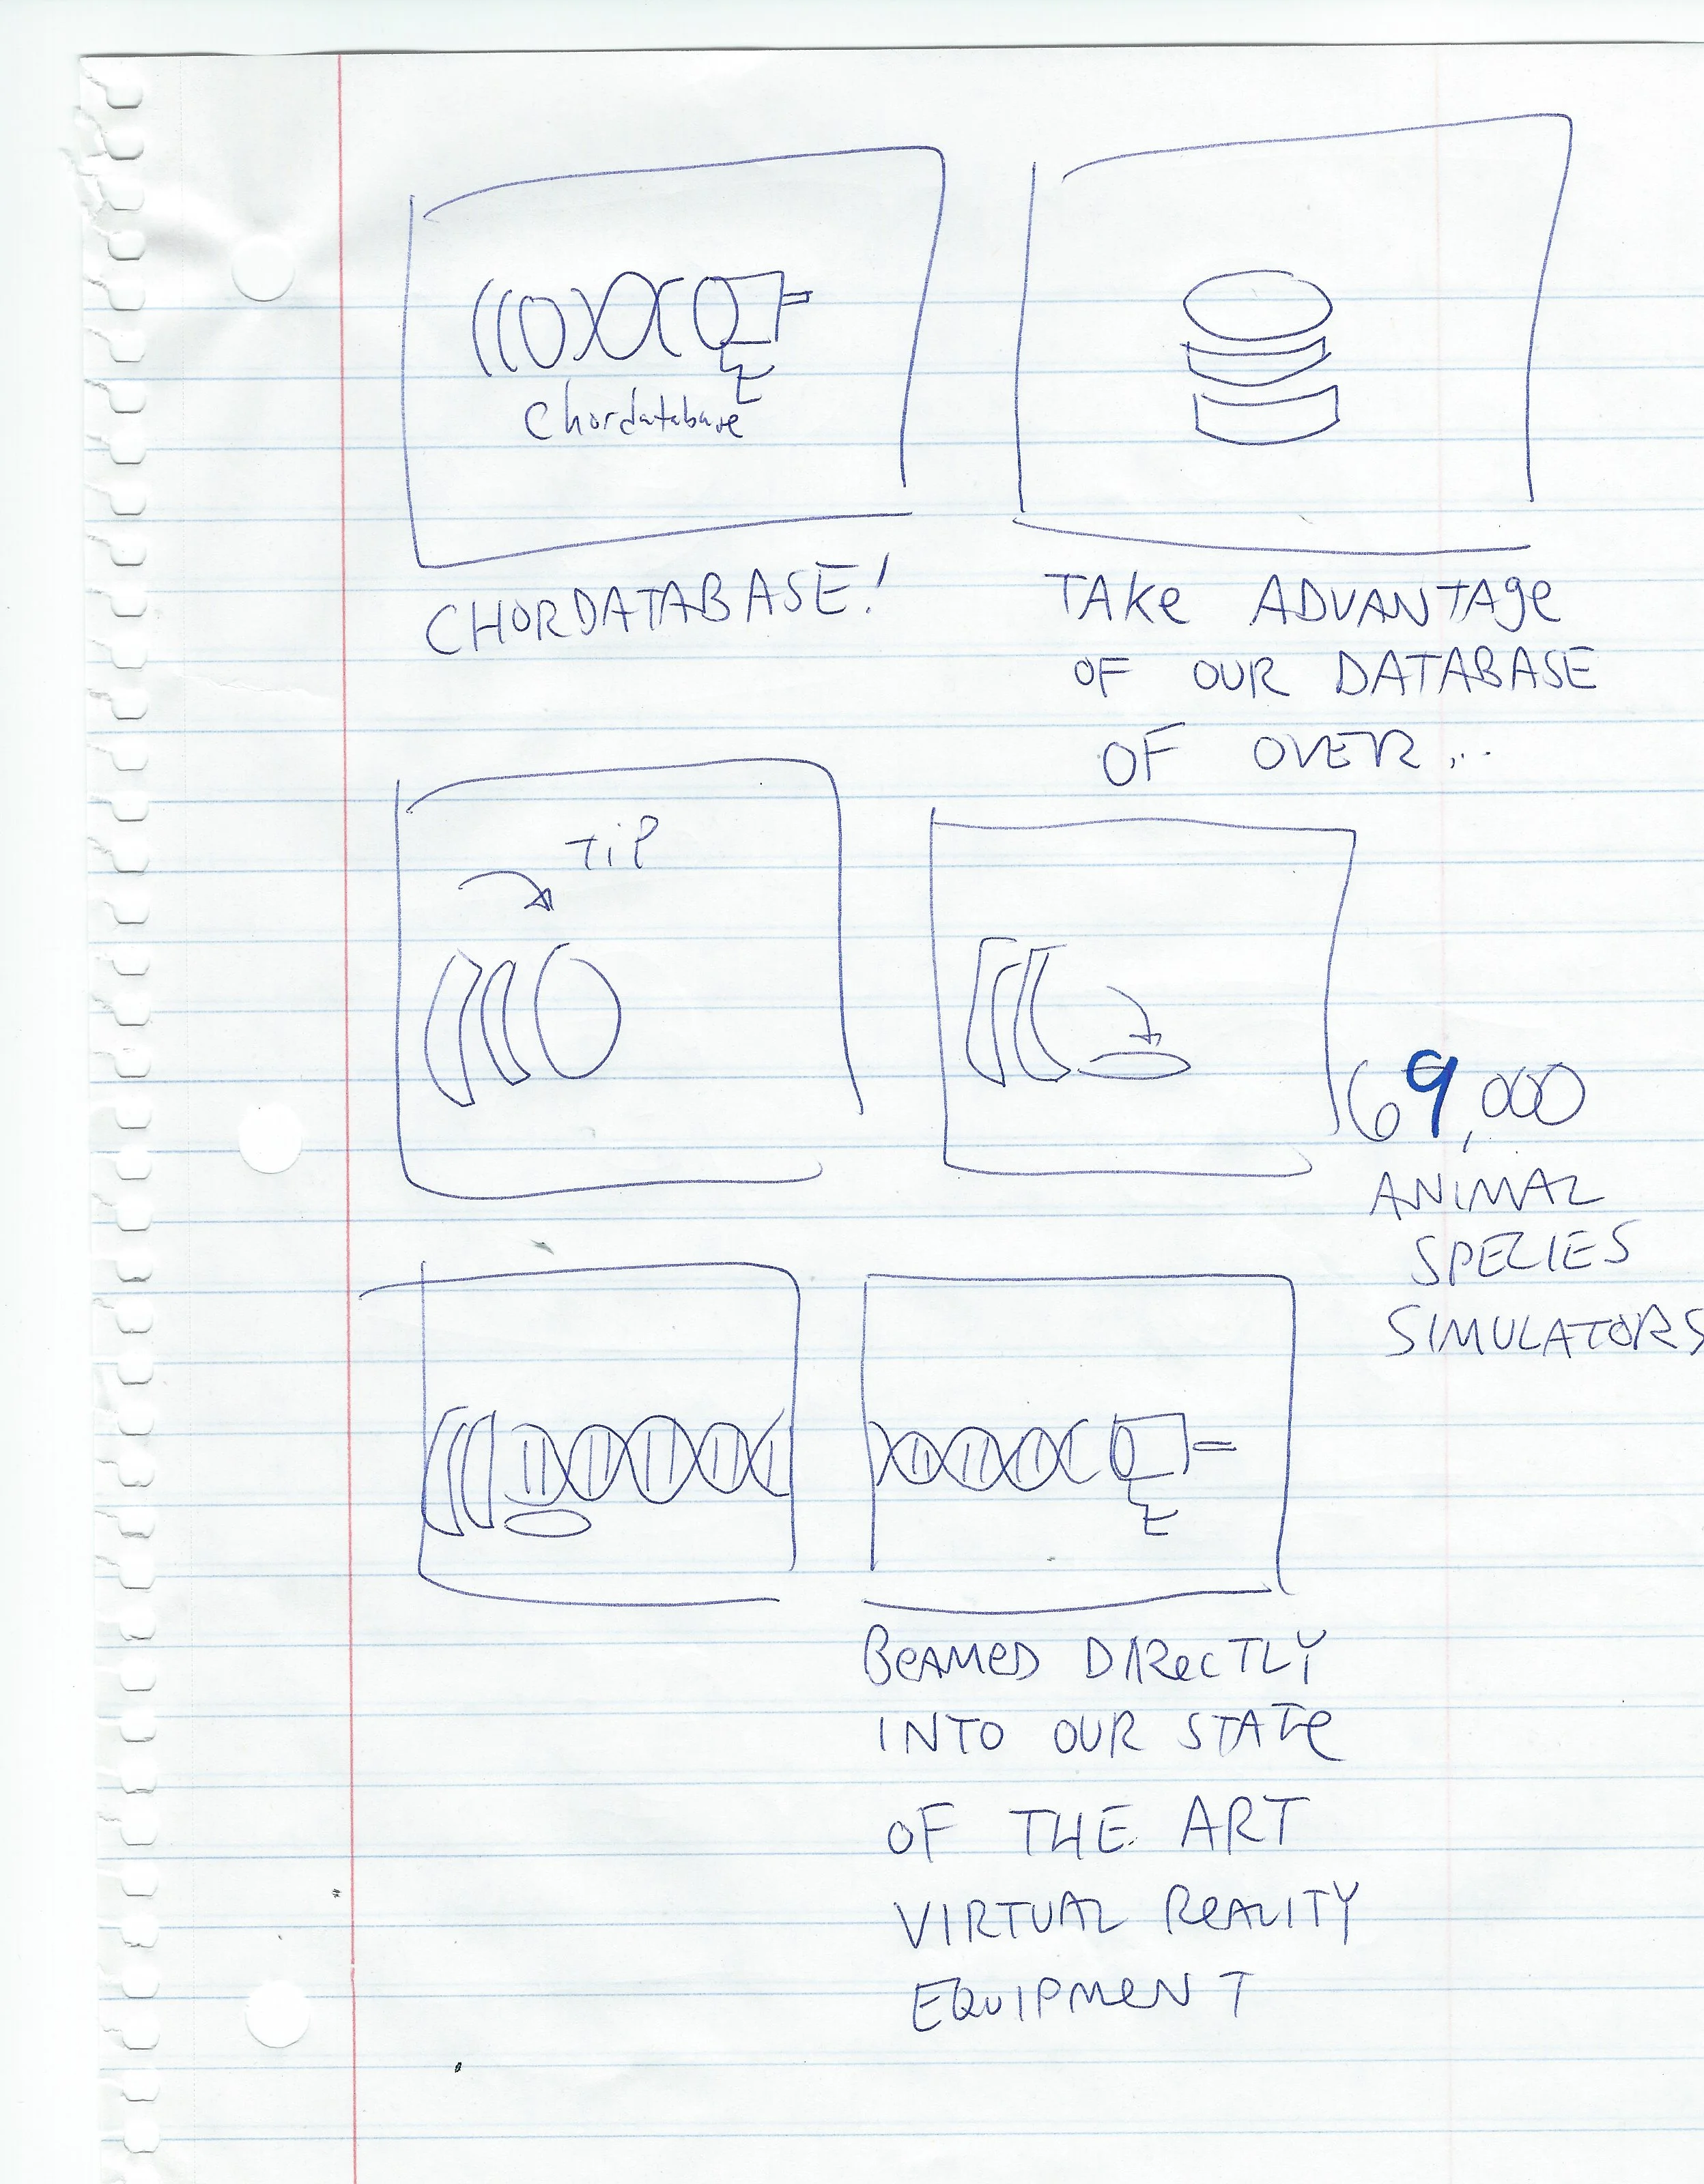 Chordatabase
CHORDATABASE!
TAKe ADVANTAge
OF OUR DATABASE
OF OVER...
TiP
69,000
ANIMAL
SPECIES
SIMULATORS
BeAMeD DIRecTLY
INTO OUR STATe
OF THE ART
VIRTUAL ReALITY
EQUIPMeNT